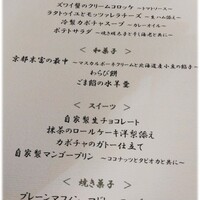 ズワイ蟹のクリームコロッケ ～トマトソース～
ラタトゥイユとモッツァレラチーズ ～生ハム添え～
冷製カボチャスープ ～カレーオイル～
ポテトサラダ ～焼き明太子とすじ海老と共に～
< 和菓子 >
京都米富の最中 ～マスカルポーネクリームと北海道産小豆の餡子～
わらび餅
ごま餡の水羊羹
< スイーツ >
自家製生チョコレート
抹茶のロールケーキ洋梨添え
カボチャのガトー仕立て
自家製マンゴープリン ～ココナッツとタピオカと共に～
< 焼き菓子 >
プレーンマフィン